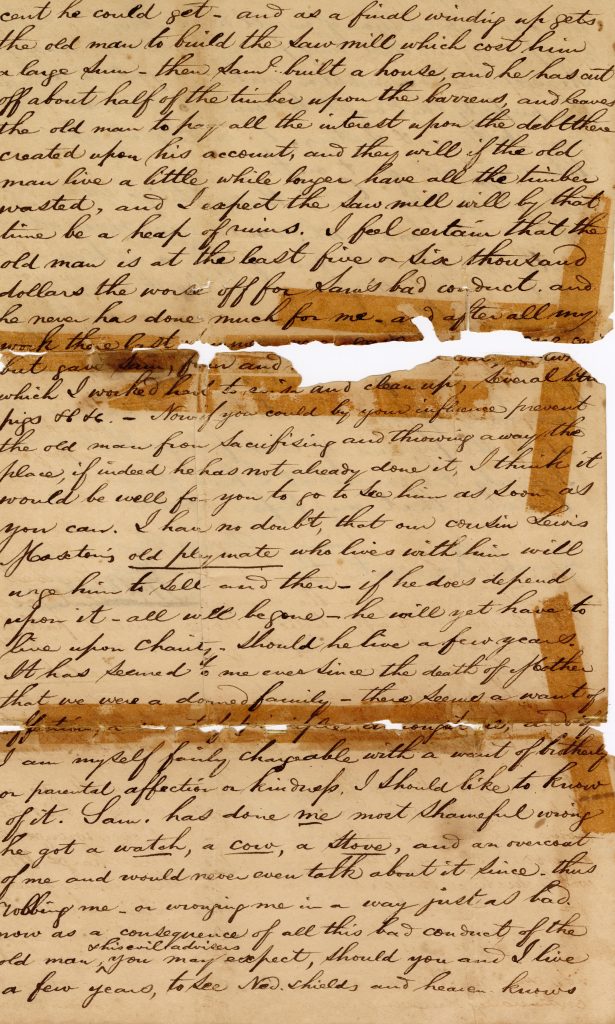 cent he could get - and as a final winding up gets
the old man to build the saw mill which cost him
a large sum - then Saml. built a house, and he has cut
off about half of the timber upon the barrens, and leave
the old man to pay all the interest upon the debt there
created upon his account, and they will if the old
man live a little while longer have all the timber
wasted, and I expect the saw mill will by that
time be a heap of ruins. I feel certain that the
old man is at the least five or six thousand
dollars the worse off for Sam's bad conduct. and
he never has done much for me - and after all my
work there last
but gave Sam, four and
which I worked hard to and clean up, several
pigs &c &c. - Now if you could by your influence prevent
the old man from sacrifising and throwing away the
place, if indeed he has not already done it, I think it
would be well fo you to go to see him as soon as
you can. I have no doubt, that our cousin Lewis
old playmate who lives with him will
urge him to sell and then - if he does depend
upon it - all will be gone - he will yet have to
live upon charity - should he live a few years.
It has seemed to me ever since the death of Mother
that we were a doomed family - there seems a want of
affection, and if
I am myself fairly chargeable with a want of brotherly
or parental affection or kindness, I should like to know
of it. Sam. has done me most shameful wrong
he got a watch, a cow, a stove, and an overcoat
of me and would never even talk about it since - thus
robbing me - or wronging me in a way just as bad.
now as a consequence of all this bad conduct of the
& his evil advisers
old man, you may expect, should you and I live
a few years, to see Ned. Shields and heaven knows